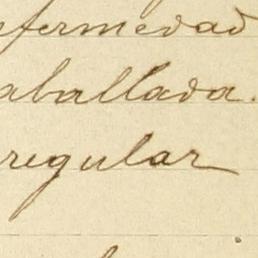 nfermedad
aballada.
regular